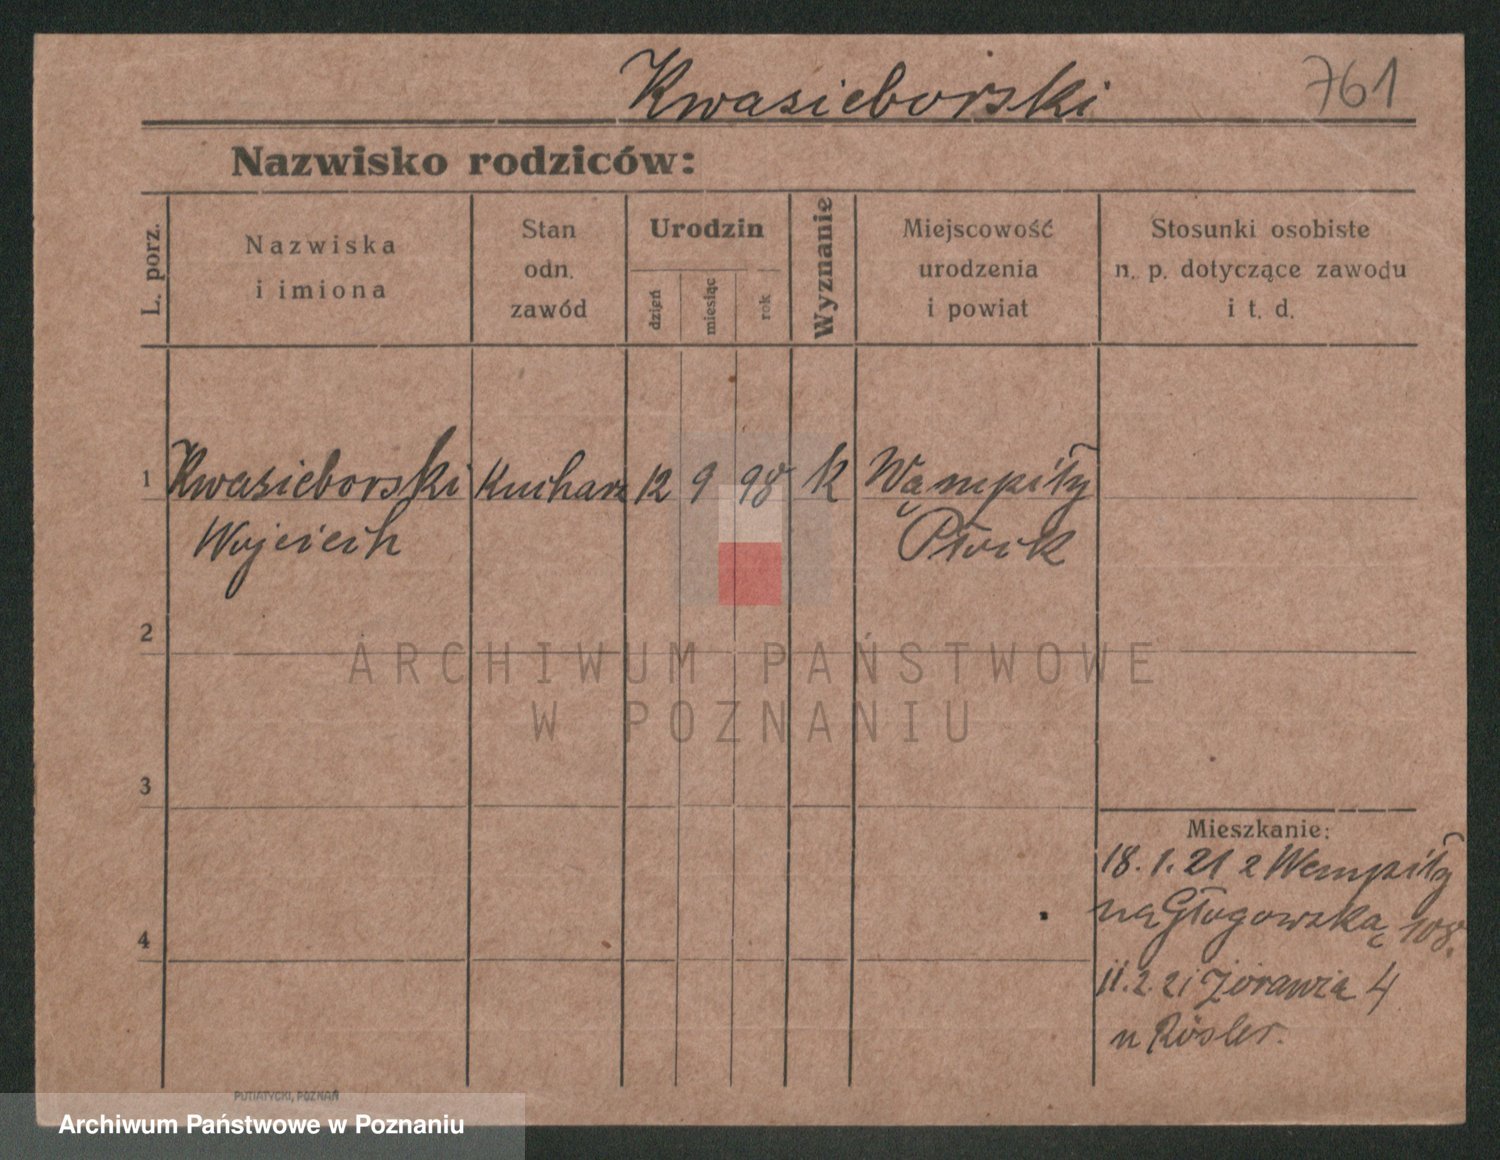 Kwasieborski 761
Nazwisko rodziców:
L. porz.
Nazwiska
i imiona
Stan
odn.
zawód
Urodzin
dzień
miesiąc
rok
Wyznanie
Miejscowość
urodzenia
i powiat
Stosunki osobiste
n. p. dotyczące zawodu
i t. d.
1 Kwasieborski Kucharz 12 9 98 k Wąmpiły
Wojciech Płock
2
ARCHIWUM PAŃSTWOWE
W POZNANIU
3
Mieszkanie:
18.1.21 z Wempiły
na Głogowską 108.
4
11.2.21 Żórawia 4
u Rösler.
PUTIATYCKI, POZNAŃ
Archiwum Państwowe w Poznaniu